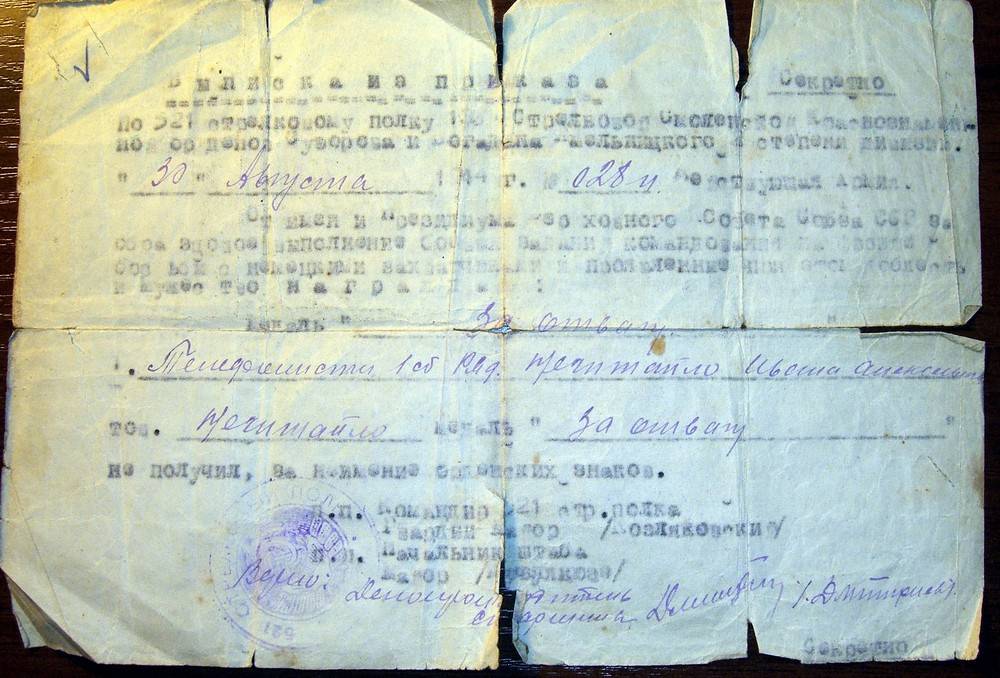 Выписка из приказа Секретно
По 521 стрелковому полку Стрелковой Смоленской Краснознамен-
ной орденов Суворова и Богдана Хмельницкого степени дивизии.
"30" Августа 1944 г. № 028 н. Действующая Армия.
От имени Президиума Верховного Совета Союза ССР за
образцовое выполнение боевых заданий командования на фронте
борьбы с немецкими захватчиками и проявленные при этом доблесть
и мужество награждаю:
медаль " За отвагу. "
1. Телефониста 1 сб Ряд. Нечитайло Ивана
тов. Нечитайло медаль " За отвагу "
не получил, за неимение орденских знаков.
П.п. Командир 521 стр.полка
Гвардии Майор /Козляковский/
П.п. Начальник штаба
Майор
Верно: Делопроизводитель
старшина /Дмитриев/.
Секретно
521